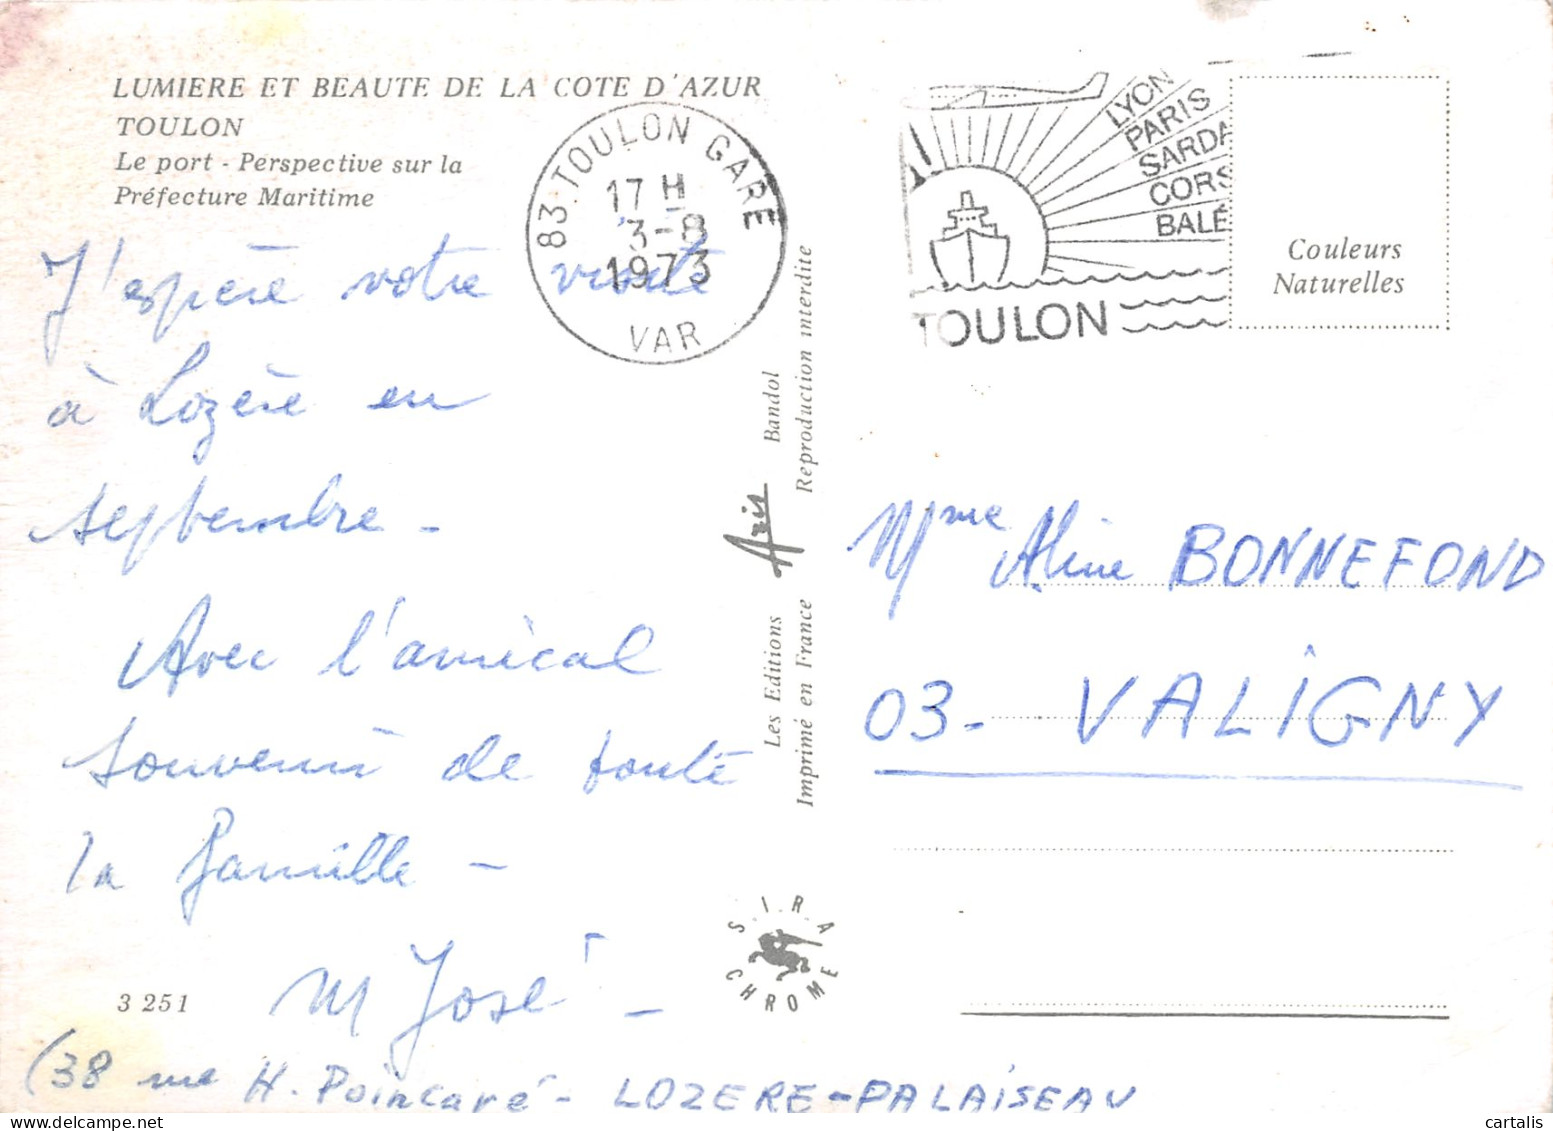 LUMIERE ET BEAUTE DE LA COTE D'AZUR
TOULON
Le port - Perspective sur la
Préfecture Maritime
83 TOULON GARE
17 H
3-8
1973
VAR
LYON
PARIS
SARDA
CORS
BALÉ
TOULON
Couleurs
Naturelles
J'espère votre visite
à Lozère en
septembre -
Avec l'amical
souvenir de toute
la famille -
M José -
(38 rue H. Poincaré - LOZERE-PALAISEAU
3 251
Les Editions Aris Bandol
Imprimé en France Reproduction interdite
S.I.R.A
CHROME
Mme Aline BONNEFOND
03 - VALIGNY
cartalis